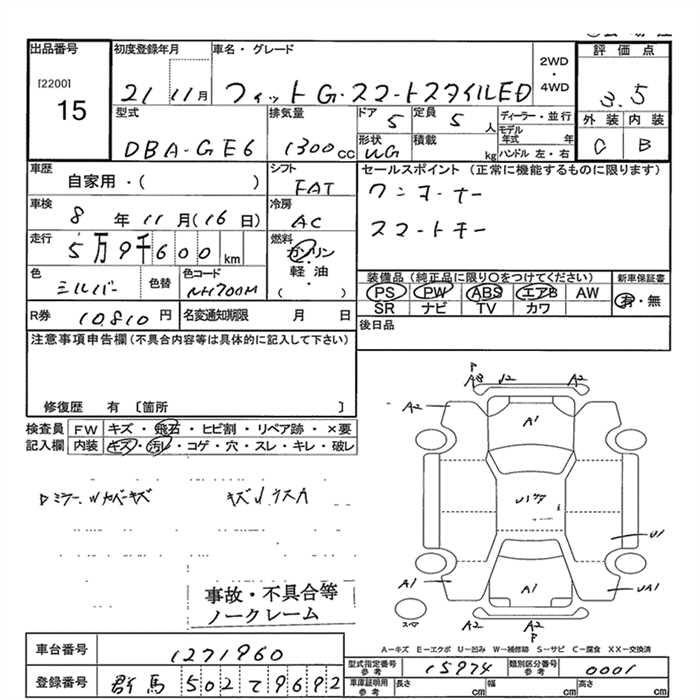 出品番号
[2200]
15
初度登録年月
21 11月
車名・グレード
フィットG・スマートスタイルED
2WD
・
4WD
評価点
3.5
外装 内装
C B
型式
DBA-GE6
排気量
1300cc
ドア
5
定員
5人
ディーラー・並行
モデル年式 年
形状
WG
積載 kg
ハンドル 左・右
車歴
自家用・( )
シフト
FAT
セールスポイント (正常に機能するものに限ります)
ワンオーナー
スマートキー
車検
8年11月(16日)
冷房
AC
走行
5万9千600km
燃料
ガソリン
軽油
( ・ )
色
シルバー
色替
色コード
NH700M
装備品(純正品に限り○をつけてください)
PS PW ABS エアB AW
SR ナビ TV カワ
新車保証書
有・無
R券 10810円
名変通知期限 月 日
後日品
注意事項申告欄(不具合内容等は具体的に記入して下さい)
修復歴 有 〔箇所 〕
検査員記入欄
FW キズ・飛石・ヒビ割・リペア跡・×要
内装 キズ・汚レ・コゲ・穴・スレ・キレ・破レ
キズ
事故・不具合等
ノークレーム
A3 U2 A2
P
A2
A1
U1
A1
UA1
A1
スペア
A2 A2
P
A=キズ E=エクボ U=凹み W=補修跡 S=サビ C=腐食 XX=交換済
車台番号 1271960
登録番号 群馬502て9692
型式指定番号 参考 15974
類別区分番号 参考 0001
車庫証明用 参考 長さ cm 幅 cm 高さ cm